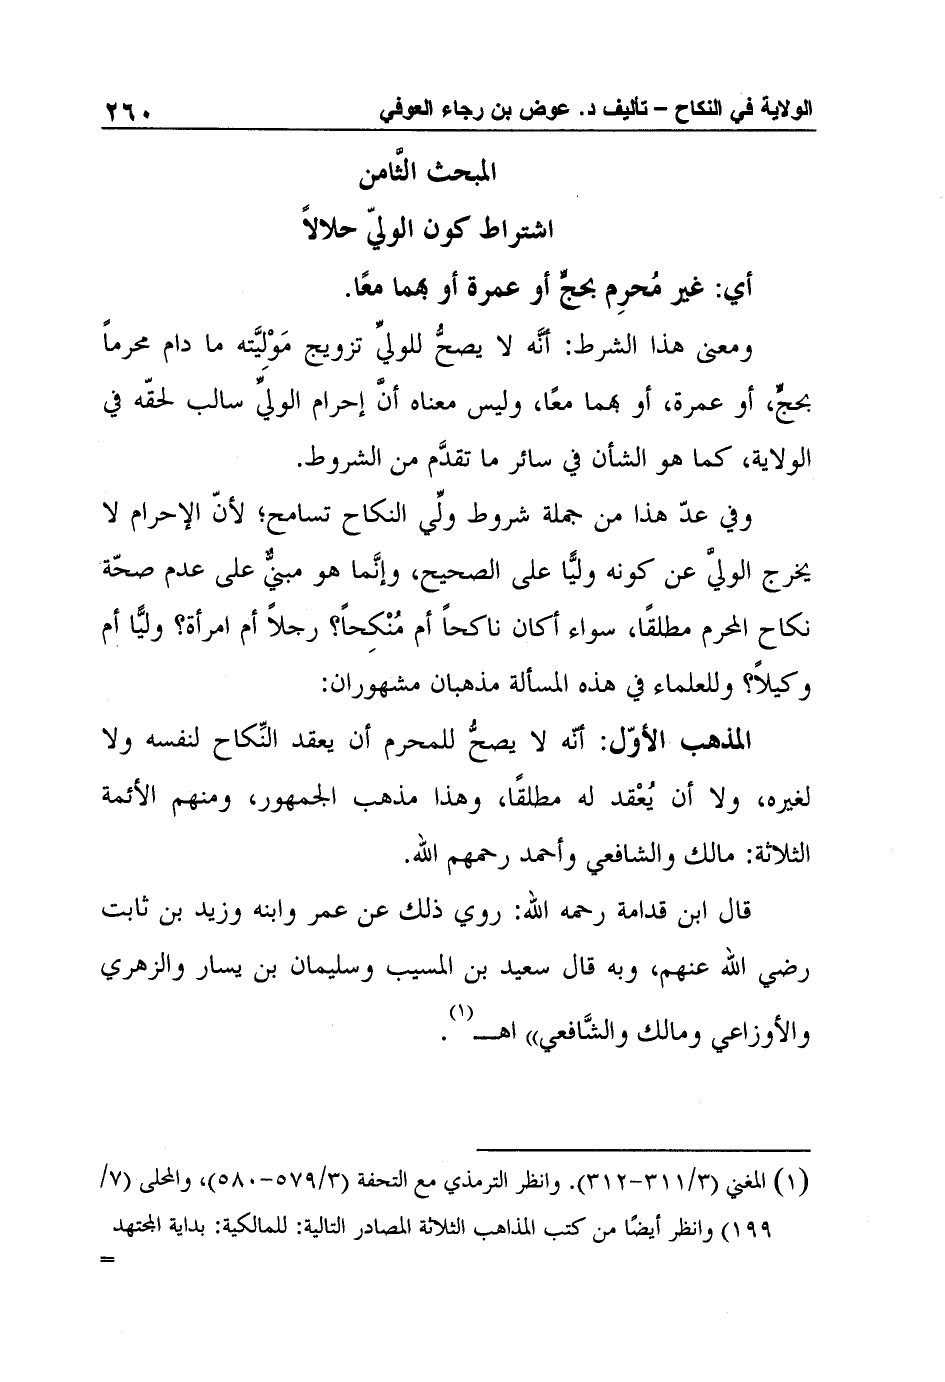 الولاية في النكاح – تأليف د. عوض بن رجاء العوفي ٢٦٠
المبحث الثَّامن
اشتراط كون الوليّ حلالاً
أي: غير مُحرِم بحجٍّ أو عمرة أو بهما معًا.
ومعنى هذا الشرط: أنَّه لا يصحُّ للوليِّ تزويج مَوْلِيَّته ما دام محرماً
بحجٍّ، أو عمرة، أو بهما معًا، وليس معناه أنَّ إحرام الوليِّ سالب لحقّه في
الولاية، كما هو الشأن في سائر ما تقدَّم من الشروط.
وفي عدّ هذا من جملة شروط وليِّ النكاح تسامح؛ لأنّ الإحرام لا
يخرج الوليَّ عن كونه وليًّا على الصحيح، وإنَّما هو مبنيٌّ على عدم صحّة
نكاح المحرم مطلقًا، سواء أكان ناكحاً أم مُنْكِحاً؟ رجلاً أم امرأة؟ وليًّا أم
وكيلاً؟ وللعلماء في هذه المسألة مذهبان مشهوران:
المذهب الأوّل: أنّه لا يصحُّ للمحرم أن يعقد النِّكاح لنفسه ولا
لغيره، ولا أن يُعْقد له مطلقًا، وهذا مذهب الجمهور، ومنهم الأئمة
الثلاثة: مالك والشافعي وأحمد رحمهم الله.
قال ابن قدامة رحمه الله: روي ذلك عن عمر وابنه وزيد بن ثابت
رضي الله عنهم، وبه قال سعيد بن المسيب وسليمان بن يسار والزهري
والأوزاعي ومالك والشَّافعي» اهـــ(١).
(١) المغني (٣/٣١١-٣١٢). وانظر الترمذي مع التحفة (٣/٥٧٩-٥٨٠)، والمحلى (٧/
١٩٩) وانظر أيضًا من كتب المذاهب الثلاثة المصادر التالية: للمالكية: بداية المجتهد
=